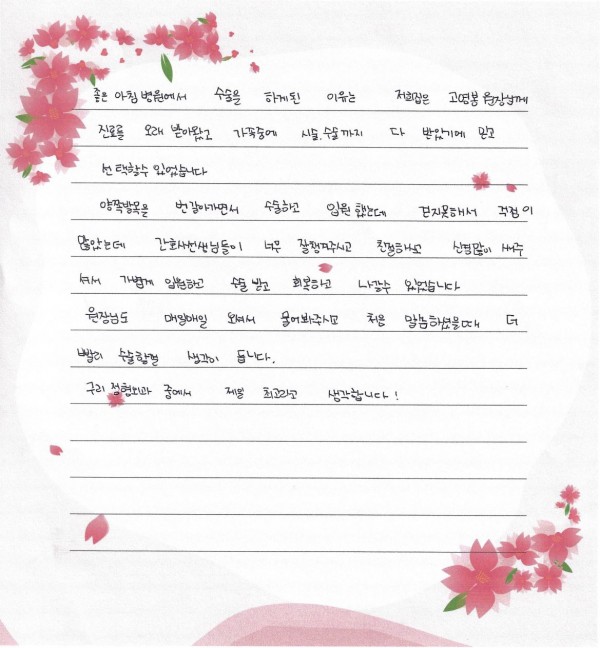 좋은 아침 병원에서 수술을 하게된 이유는 저희집은 고영봉 원장님께
진료를 오래 받아왔고 가족중에 시술.수술까지 다 받았기에 믿고
선택할수 있었습니다
양쪽발목을 번갈아가면서 수술하고 입원했는데 걷지못해서 걱정이
많았는데 간호사선생님들이 너무 잘챙겨주시고 친절하고 신경많이 써주
셔서 가볍게 입원하고 수술 받고 회복하고 나갈수 있었습니다
원장님도 매일매일 오셔서 물어봐주시고 처음 말씀하셨을때 더
빨리 수술할껄 생각이 듭니다.
구리 정형외과 중에서 제일 최고라고 생각합니다!